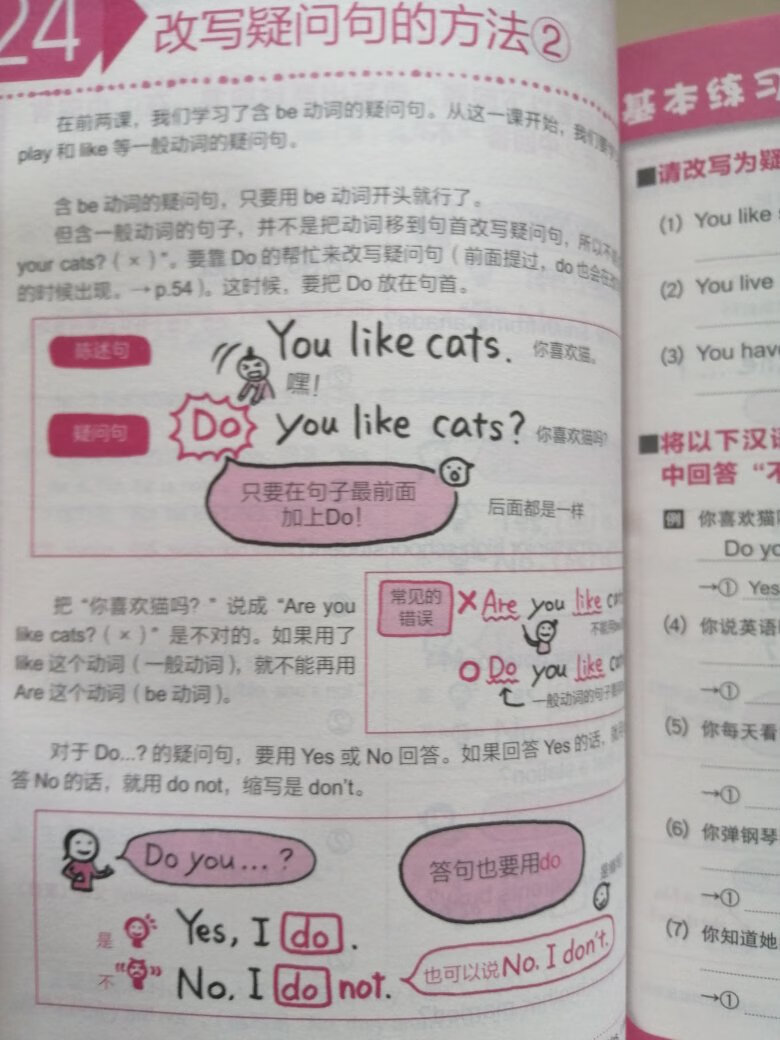 24 改写疑问句的方法②
在前两课，我们学习了含 be 动词的疑问句。从这一课开始，我们要学
play 和 like 等一般动词的疑问句。
含 be 动词的疑问句，只要用 be 动词开头就行了。
但含一般动词的句子，并不是把动词移到句首改写疑问句，所以不
your cats?（×）”。要靠 Do 的帮忙来改写疑问句（前面提过，do 也会在
的时候出现。→p.54）。这时候，要把 Do 放在句首。
陈述句 You like cats. 你喜欢猫。
嘿！
疑问句 Do you like cats? 你喜欢猫吗？
只要在句子最前面
加上Do！
后面都是一样
把“你喜欢猫吗？”说成“Are you
like cats?（×）”是不对的。如果用了
like 这个动词（一般动词），就不能再用
Are 这个动词（be 动词）。
常见的
错误
× Are you like
○ Do you like
一般动词的句子
对于 Do...? 的疑问句，要用 Yes 或 No 回答。如果回答 Yes 的话，
答 No 的话，就用 do not，缩写是 don't。
Do you...?
答句也要用do
是 Yes, I do.
不 No, I do not.
也可以说No, I don't.
基本练习
■请改写为疑
(1) You like
(2) You live
(3) You have
■将以下汉语
中回答“不
例 你喜欢猫
Do yo
→① Yes
(4) 你说英语
→①
(5) 你每天看
→①
(6) 你弹钢琴
→①
(7) 你知道她
→①